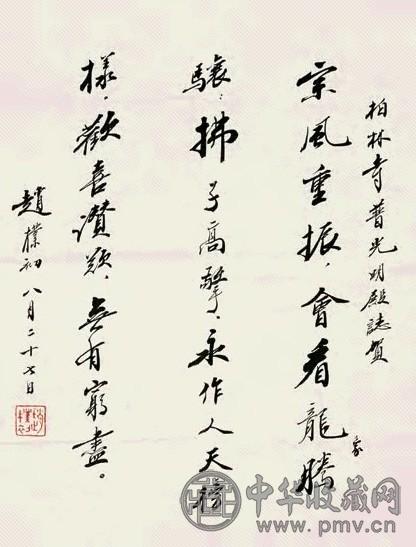 柏林寺普光明殿誌賀
宗風重振，會看龍象騰
驤；拂子高擎，永作人天榜
樣，歡喜讚歎，無有窮盡。
趙樸初 八月二十七日
中华收藏网
www.pmv.cn